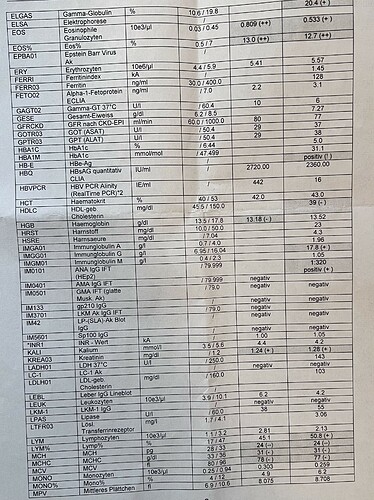 20.4 (+)
ELGAS Gamma-Globulin % 10.6 / 19.8
ELSA Elektrophorese / 0.533 (+)
EOS Eosinophile Granulozyten 10e3/µl 0.03 / 0.45 0.809 (++)
EOS% Eos% % 0.5 / 7 13.0 (++) 12.7 (++)
EPBA01 Epstein Barr Virus Ak /
ERY Erythrozyten 10e6/µl 4.4 / 5.9 5.41 5.57
FERRI Ferritinindex kA / 1.45
FERR03 Ferritin ng/ml 30.0 / 400.0 128
FETO02 Alpha-1-Fetoprotein ECLIA ng/ml / 7.0 2.2 3.1
GAGT02 Gamma-GT 37°C U/l / 60.4 10 6
GESE Gesamt-Eiweiss g/dl 6.2 / 8.5 7.27
GFRCKD GFR nach CKD-EPI ml/min 60.0 / 1000.0 80 77
GOTR03 GOT (ASAT) U/l / 50.4 29 37
GPTR03 GPT (ALAT) U/l / 50.4 29 38
HBA1C HbA1c % / 6.44 5.0
HBA1M HbA1c mmol/mol / 47.499 31.1
HB-E HBe-Ag / positiv (!)
HBQ HBsAG quantitativ CLIA IU/ml / 2720.00 2360.00
HBVPCR HBV PCR Alinity (RealTime PCR)*2 IE/ml / 442 16
HCT Haematokrit % 40 / 53 42.0 43.0
HDLC HDL-geb. Cholesterin mg/dl 45.5 / 150.0 39 (-)
HGB Haemoglobin g/dl 13.5 / 17.8 13.18 (-) 13.52
HRST Harnstoff mg/dl 10.0 / 50.0 23
HSRE Harnsaeure mg/dl / 7.04 4.3
IMGA01 Immunglobulin A g/l 0.7 / 4.0 1.96
IMGG01 Immunglobulin G g/l 6.95 / 16.04 17.8 (+)
IMGM01 Immunglobulin M g/l 0.4 / 2.3 1.05
IM0101 ANA IgG IFT (HEp2) / 79.999 1:320 positiv (+)
IM0401 AMA IgG IFT / 79.999 negativ negativ
IM0501 GMA IFT (glatte Musk. Ak) / 79.0 negativ
IM133 gp210 IgG / negativ negativ
IM3701 LKM Ak IgG IFT / 79.0 negativ
IM42 LP-(SLA)-Ak Blot IgG / negativ negativ
IM5601 Sp100 IgG / negativ negativ
*INR1 INR - Wert kA / 1.00 1.05
KALI Kalium mmol/l 3.5 / 5.6 4.4
KREA03 Kreatinin mg/dl / 1.2 1.24 (+) 1.28 (+)
LADH01 LDH 37°C U/l / 250.0 143
LC-1 LC-1 Ak / negativ negativ
LDLH01 LDL-geb. Cholesterin mg/dl / 160.0 103
LEBL Leber IgG Lineblot /
LEUK Leukozyten 10e3/µl 3.9 / 10.1 6.2 4.2
LKM-1 LKM-1 IgG / negativ negativ
LPAS Lipase U/l / 60.0 38 55
LTFR03 Lösl. Transferrinrezeptor mg/l 1.7 / 4.1 3.06
LYM Lymphozyten 10e3/µl 1.1 / 3.2 2.81 2.13
LYM% Lymph% % 17 / 47 45.1 50.8 (+)
MCH MCH pg 28 / 33 24 (-) 24 (-)
MCHC MCHC g/dl 33 / 36 31 (-) 31 (-)
MCV MCV fl 80 / 96 78 (-) 77 (-)
MONO Monozyten 10e3/µl 0.25 / 0.94 0.303 0.259
MONO% Mono% % 4 / 12 4.9 6.2
MPV Mittleres Plättchen fl 6.9 / 10.6 8.075 8.708